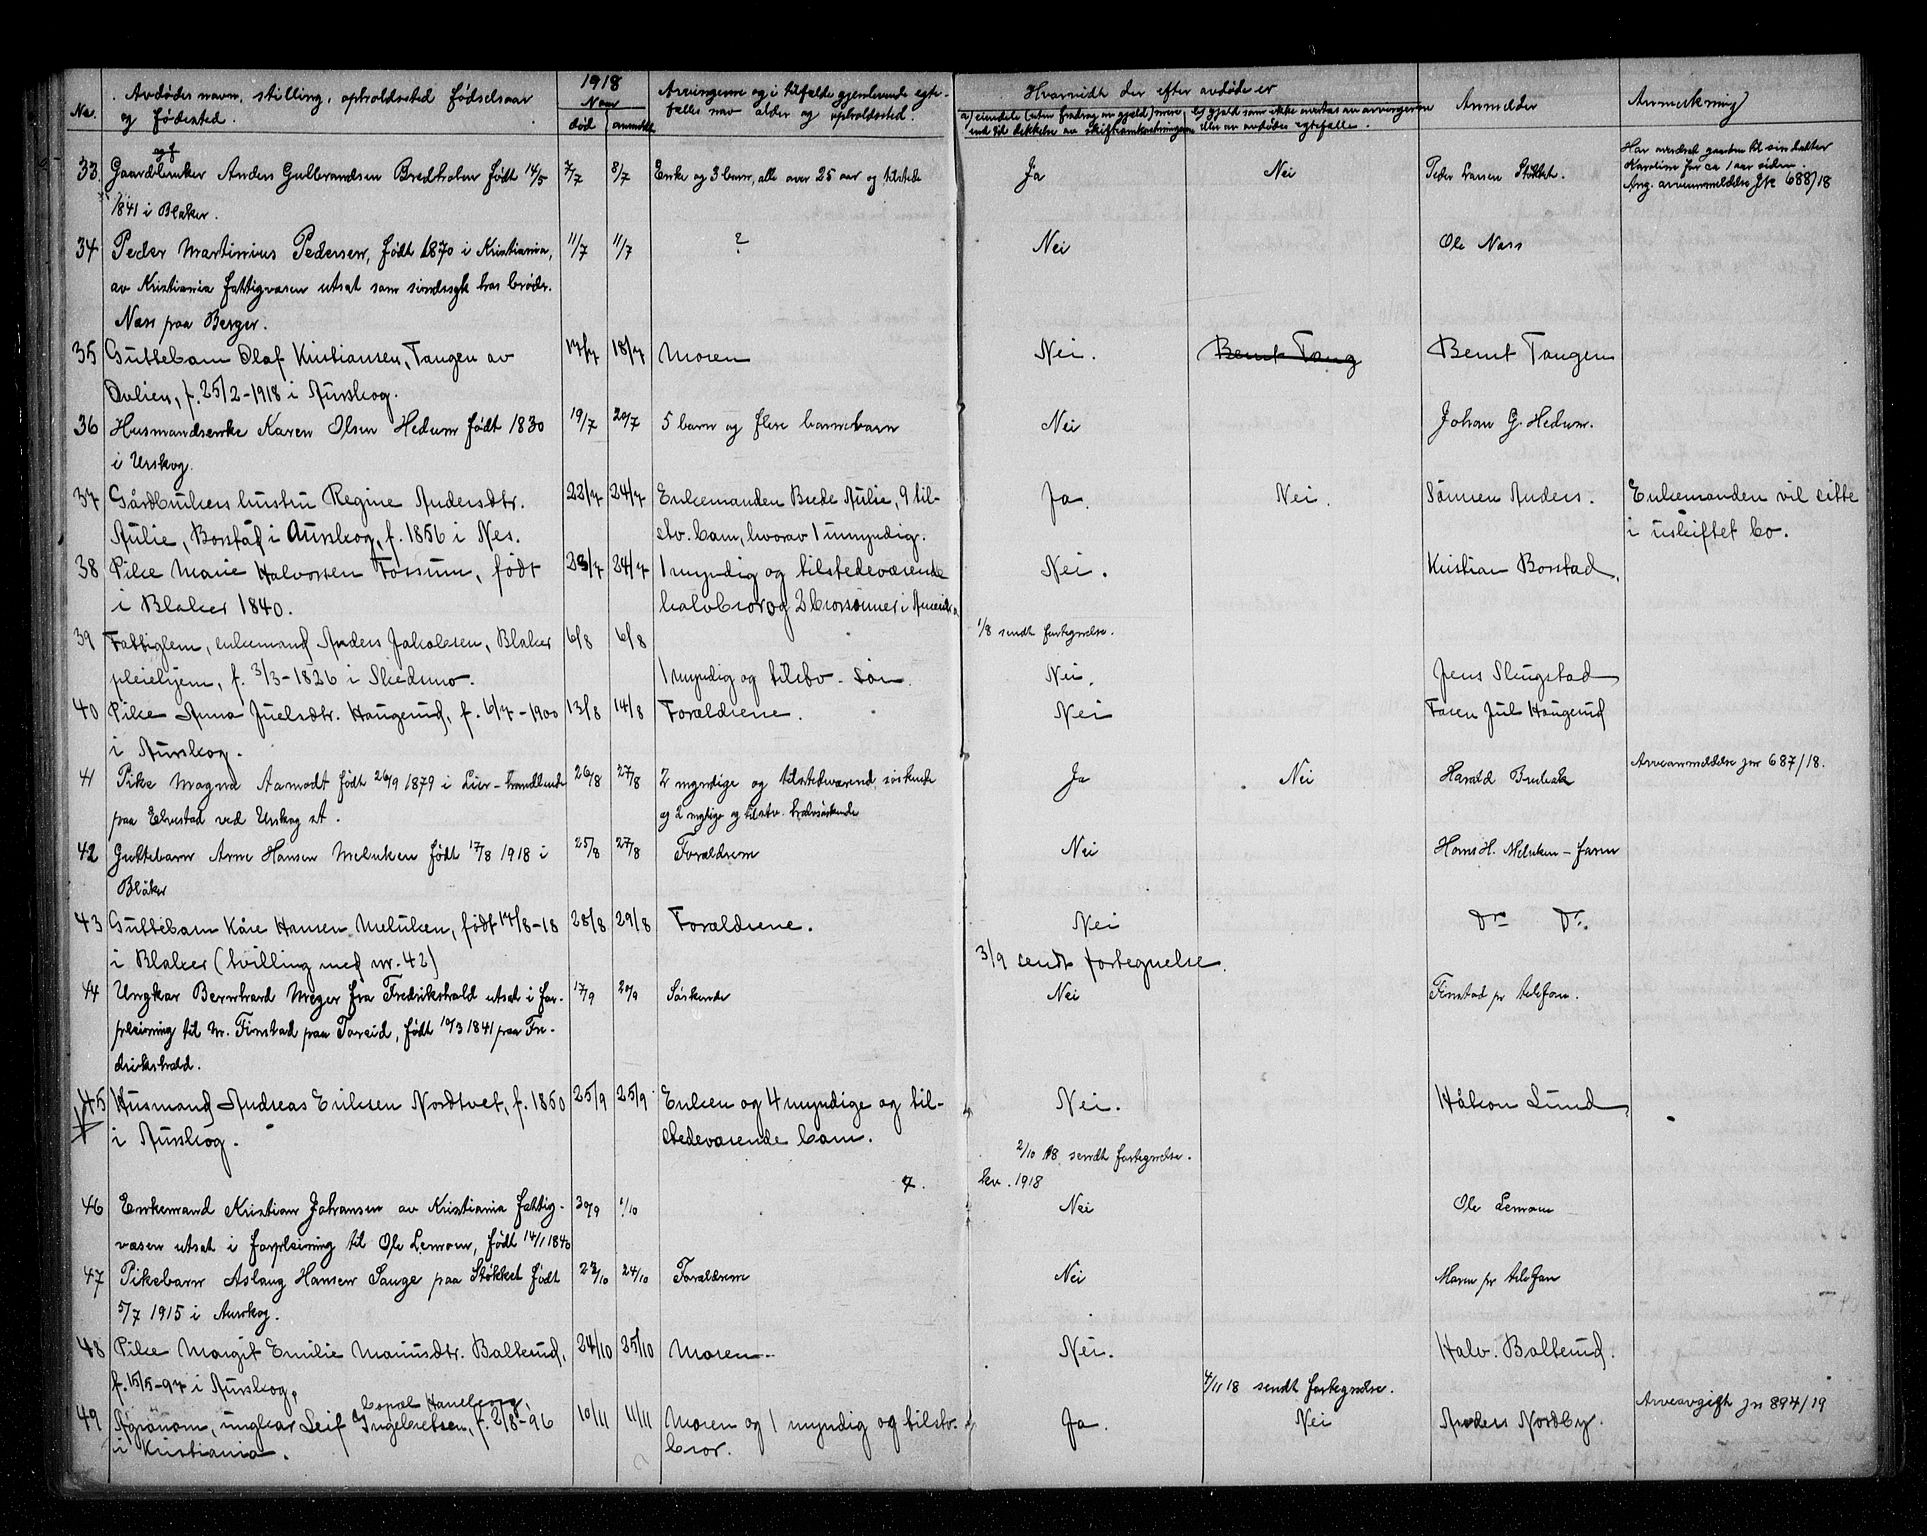 No. Avdødes navn, stilling, opholdssted fødselsaar og fødested. 1918 Naar død anmeldt Arvingerne og i tilfælde gjenlevende egtefælles navn alder og opholdssted. Hvorvidt der efter avdøde er Anmelder Anmerkning
a) eiendele (uten fradrag av gjæld) mere end til dækkelse av skifteomkostningerne b) gjæld som ikke overtas av arvingerne eller av avdødes egtefælle.
33. Gaardbruker Anders Gulbrandsen Bredholm født 14/5 7/7 8/7 Enke og 3 barn, alle over 25 aar og tilstede Ja Nei Peder Larsen Støkket. Har overdraget gaarden til sin datter
Karoline for ca 1 aar siden.
1841 i Blaker. Ang. arveanmeldelse J№ 688/18
34 Peder Martinius Pedersen, født 1870 i Kristiania, 11/7 11/7 ? Nei Ole Næss
av Kristiania fattigvæsen utsat som sindssyk hos brødr.
Næss paa Berger.
35 Guttebarn Olaf Kristiansen, Tangen av 17/7 18/7 Moren Nei. Bernt Tang Bernt Tangen
Ovlien, f. 25/2-1918 i Aurskog.
36 Husmandsenke Karen Olsen Hedum født 1830 19/7 20/7 5 barn og flere barnebarn Nei Johan G. Hedum.
i Urskog.
37 Gårdbrukers hustru Regine Andersdtr. 23/7 24/7 Enkemanden Brede Aulie, 9 til- Ja. Nei. Sønnen Anders. Enkemanden vil sitte
Aulie, Borstad i Aurskog, f. 1856 i Nes. stv. barn, hvorav 1 umyndig. i uskiftet bo.
38 Pike Marie Halvorsen Fossum, født 23/7 24/7 1 myndig og tilstedeværende Nei. Kristian Borstad.
i Blaker 1840. halvbror og 2 brorsønner i Amerika
39 Fattiglem, enkemand Anders Jakobsen, Blaker 6/8 6/8 1/8 sendt fortegnelse.
pleiehjem, f. 3/3-1826 i Skedsmo. 1 myndig og tilstv. søn Nei. Jens Slugstad
40 Pike Anna Juelsdtr. Haugerud, f. 6/7-1900 13/8 14/8 Forældrene. Nei Faren Jul Haugerud
i Aurskog.
41 Pike Magna Aamodt født 26/9 1879 i Lier - handlende 26/8 27/8 2 myndige og tilstedeværend. søskende Ja Nei Harald Arveanmeldelse jnr 687/18.
paa Elvestad ved Urskog st. og 2 mynige og tilstv. halvsøskende
42 Guttebarn Arne Hansen Melnken født 17/8 1918 i 25/8 27/8 Forældrene Nei Hans H. Melnken - faren
Blåker
43 Guttebarn Kåre Hansen Melnken, født 17/8-18 28/8 29/8 Forældrene. Nei Do Do.
i Blaker (tvilling med nr. 42) 3/9 sendt fortegnelse.
44 Ungkar Bernhard Meyer fra Fredrikshald utsat i for- 17/9 20/9 Søskende Nei Finstad pr telefon.
pleining til M. Finstad paa Toreid, født 10/3 1841 paa Fre-
drikshald.
45 Husmand Andreas Eriksen Nordtvet, f. 1850 25/9 25/9 Enken og 4 myndige og til- Nei. Håkon Lund
i Aurskog. stedeværende barn.
2/10 18 sendt fortegnelse.
?. kv. 1918
46 Enkemand Kristian Johansen av Kristiania fattig- 30/9 1/10 Nei Ole Lemoen
væsen utsat i forpleining til Ole Lemoen, født 14/1 1840
47 Pikebarn Aslaug Hansen Sauge paa Støkket født 22/10 24/10 Forældrene Nei Moren pr telefon
5/7 1915 i Aurskog.
48 Pike Margit Emilie Mariusdtr. Balterud, 24/10 25/10 Moren. Nei. Halv. Balterud.
f. 15/5-97 i Aurskog. 4/11 18 sendt fortegnelse.
Haneborg,
49 Agronom, ungkar Leif Ingebretsen, f. 2/8-96 10/11 11/11 Moren og 1 myndig og tilstv. Ja. Nei Anders Nordby. Arveavgift jn 894/19
i Kristiania. bror.